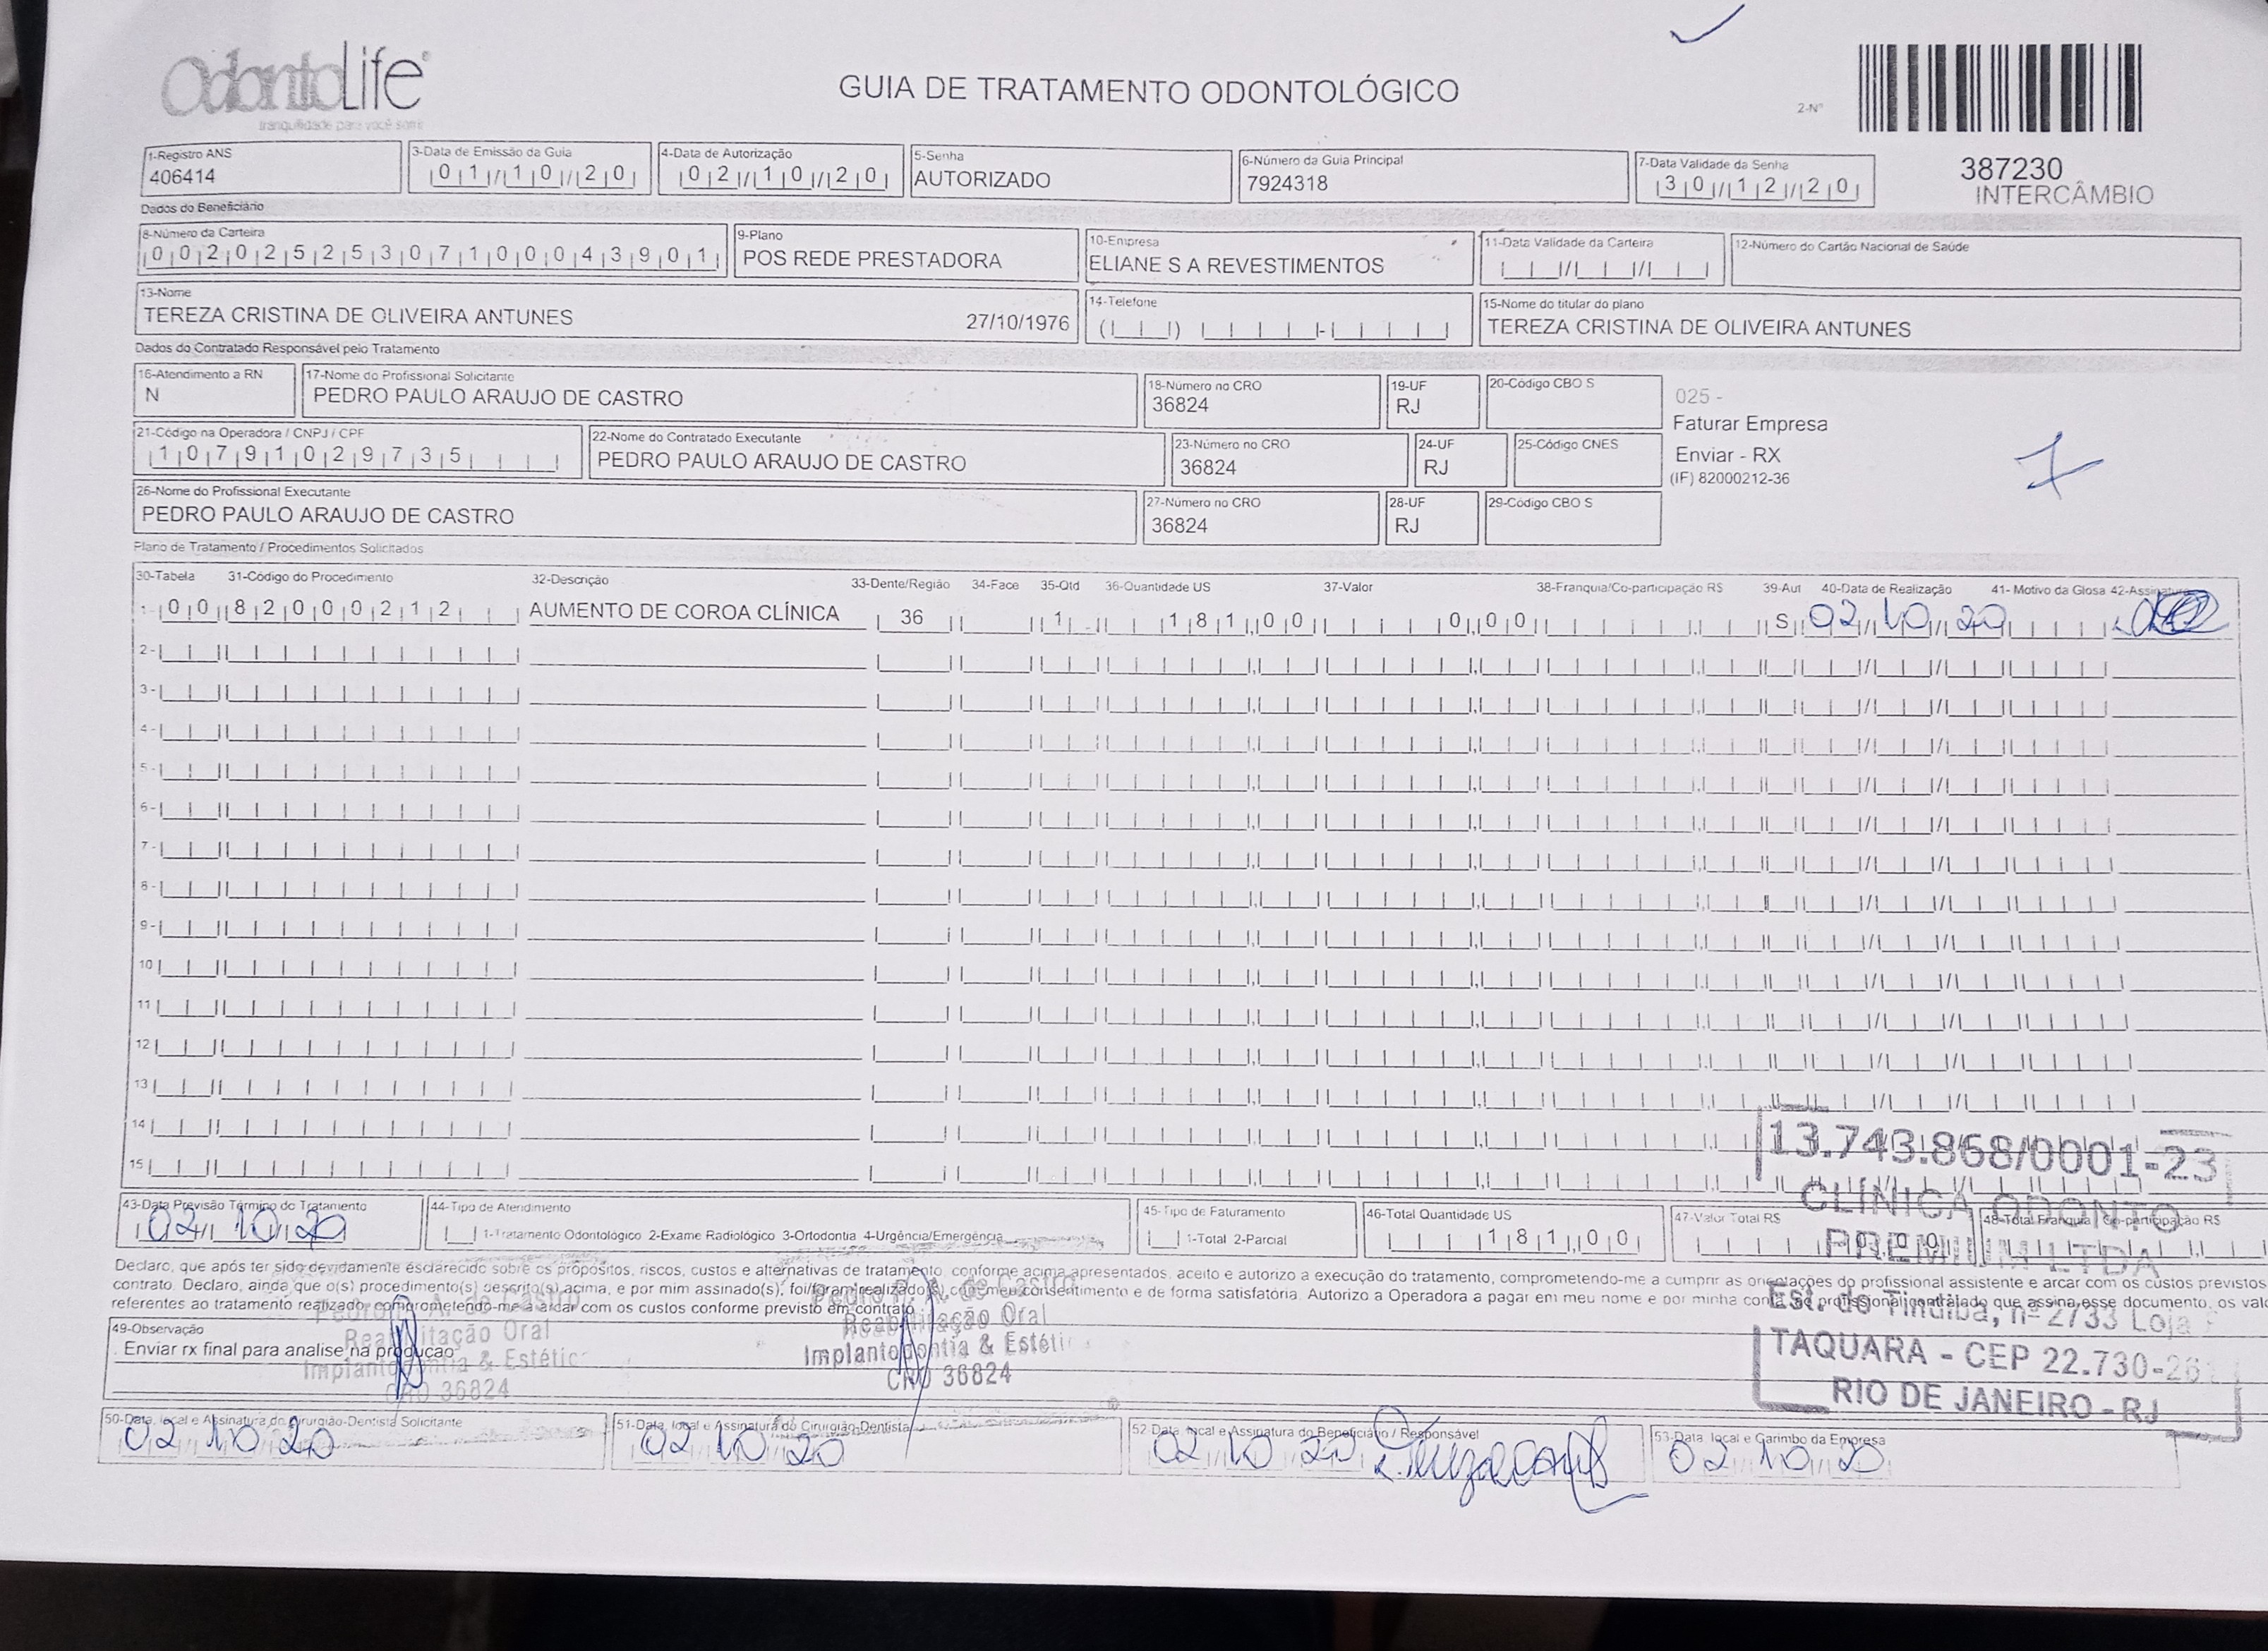 OdontoLife
tranquilidade para você sorrir
GUIA DE TRATAMENTO ODONTOLÓGICO
2-Nº
387230
INTERCÂMBIO
1-Registro ANS
406414
3-Data de Emissão da Guia
01/10/20
4-Data de Autorização
02/10/20
5-Senha
AUTORIZADO
6-Número da Guia Principal
7924318
7-Data Validade da Senha
30/12/20
Dados do Beneficiário
8-Número da Carteira
00202525307100043901
9-Plano
POS REDE PRESTADORA
10-Empresa
ELIANE S A REVESTIMENTOS
11-Data Validade da Carteira
12-Número do Cartão Nacional de Saúde
13-Nome
TEREZA CRISTINA DE OLIVEIRA ANTUNES 27/10/1976
14-Telefone
15-Nome do titular do plano
TEREZA CRISTINA DE OLIVEIRA ANTUNES
Dados do Contratado Responsável pelo Tratamento
16-Atendimento a RN
N
17-Nome do Profissional Solicitante
PEDRO PAULO ARAUJO DE CASTRO
18-Número no CRO
36824
19-UF
RJ
20-Código CBO S
025 -
Faturar Empresa
Enviar - RX
(IF) 82000212-36
7
21-Código na Operadora / CNPJ / CPF
10791029735
22-Nome do Contratado Executante
PEDRO PAULO ARAUJO DE CASTRO
23-Número no CRO
36824
24-UF
RJ
25-Código CNES
26-Nome do Profissional Executante
PEDRO PAULO ARAUJO DE CASTRO
27-Número no CRO
36824
28-UF
RJ
29-Código CBO S
Plano de Tratamento / Procedimentos Solicitados
30-Tabela 31-Código do Procedimento 32-Descrição 33-Dente/Região 34-Face 35-Qtd 36-Quantidade US 37-Valor 38-Franquia/Co-participação R$ 39-Aut 40-Data de Realização 41- Motivo da Glosa 42-Assinatura
1- 00 82000212 AUMENTO DE COROA CLÍNICA 36 1 181,00 0,00 S 02/10/20
2-
3-
4-
5-
6-
7-
8-
9-
10
11
12
13
14
15
13.743.868/0001-23
CLÍNICA ODONTO
PREMIUM LTDA
Est. do Tindiba, nº 2733 Loja
TAQUARA - CEP 22.730-261
RIO DE JANEIRO - RJ
43-Data Previsão Término do Tratamento
02/10/20
44-Tipo de Atendimento
1-Tratamento Odontológico 2-Exame Radiológico 3-Ortodontia 4-Urgência/Emergência
45-Tipo de Faturamento
1-Total 2-Parcial
46-Total Quantidade US
181,00
47-Valor Total R$
0,00
48-Total Franquia / Co-participação R$
Declaro, que após ter sido devidamente esclarecido sobre os propósitos, riscos, custos e alternativas de tratamento, conforme acima apresentados, aceito e autorizo a execução do tratamento, comprometendo-me a cumprir as orientações do profissional assistente e arcar com os custos previstos
contrato. Declaro, ainda que o(s) procedimento(s) descrito(s) acima, e por mim assinado(s), foi/foram realizado(s) com meu consentimento e de forma satisfatória. Autorizo a Operadora a pagar em meu nome e por minha conta ao profissional contratado que assina esse documento, os
referentes ao tratamento realizado, comprometendo-me a arcar com os custos conforme previsto em contrato
49-Observação
Enviar rx final para analise na produção
Pedro P. A. de Castro
Reabilitação Oral
Implantodontia & Estética
CRO 36824
Pedro P. A. de Castro
Reabilitação Oral
Implantodontia & Estétic
CRO 36824
50-Data, local e Assinatura do Cirurgião-Dentista Solicitante
02 10 20
51-Data, local e Assinatura do Cirurgião-Dentista
02 10 20
52-Data, local e Assinatura do Beneficiário / Responsável
02 10 20
53-Data, local e Carimbo da Empresa
02 10 20